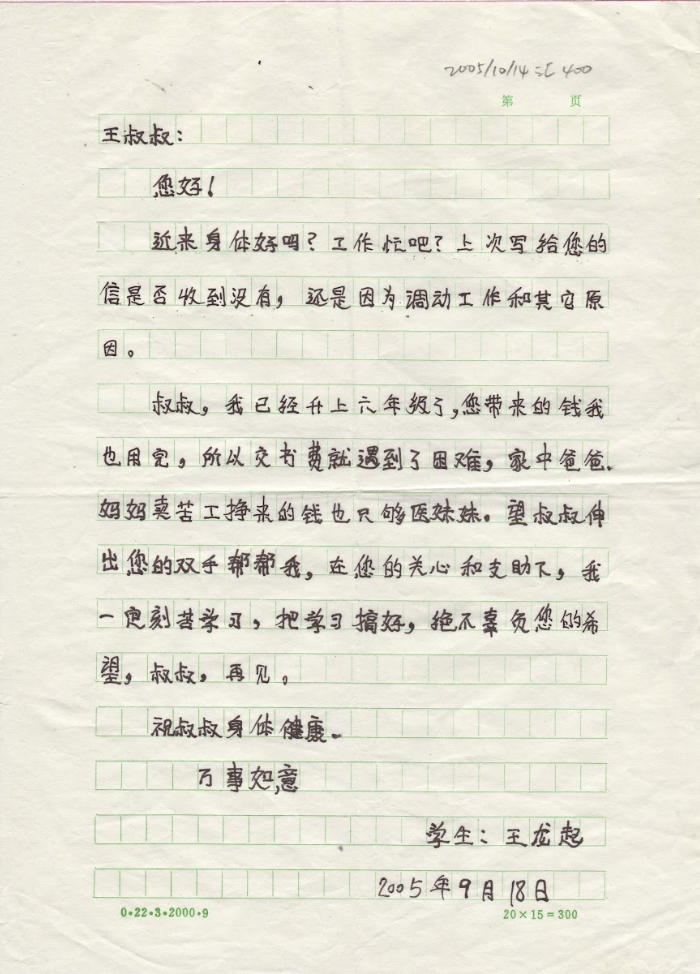 2005/10/14 汇 400
第 页
王叔叔：
您好！
近来身体好吗？工作忙吧？上次写给您的
信是否收到没有，还是因为调动工作和其它原
因。
叔叔，我已经升上六年级了，您带来的钱我
也用完，所以交书费就遇到了困难，家中爸爸、
妈妈卖苦工挣来的钱也只够医妹妹。望叔叔伸
出您的双手帮帮我，在您的关心和支助下，我
一定刻苦学习，把学习搞好，绝不辜负您的希
望，叔叔，再见。
祝叔叔身体健康。
万事如意
学生：王龙起
2005年9月18日
0·22·3·2000·9
20×15=300